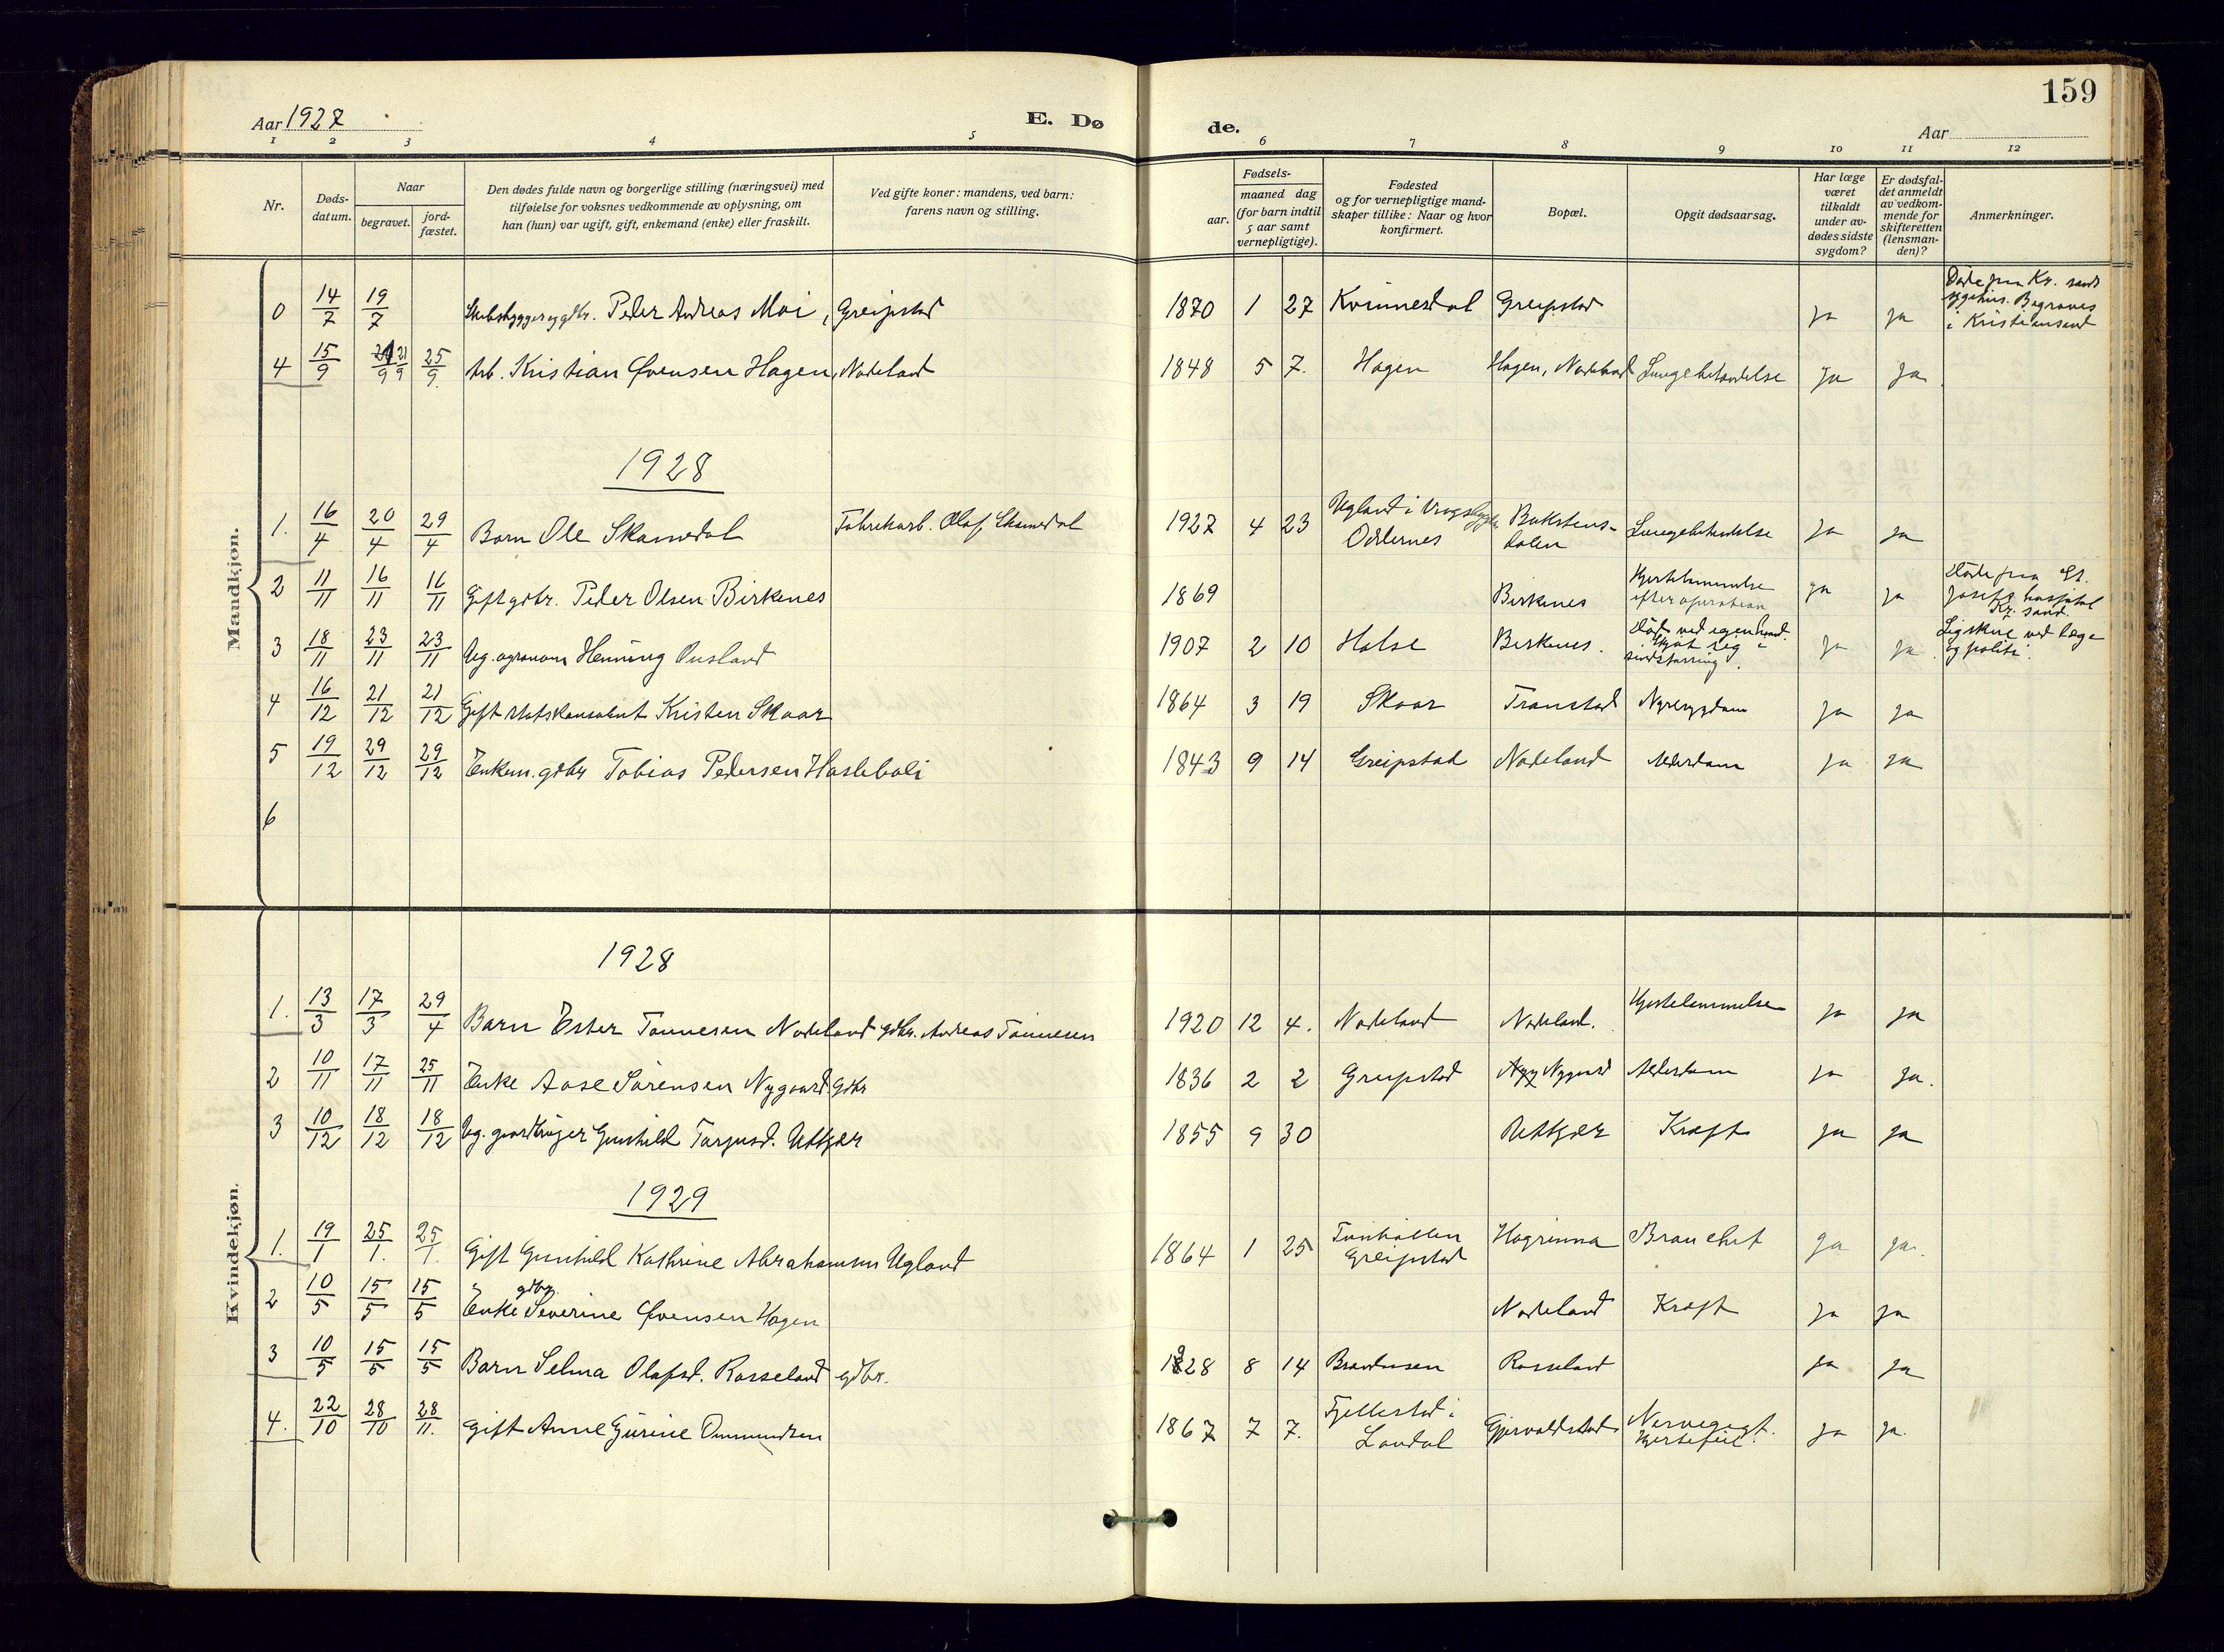 159
Aar 1927
E. Dø
de.
Aar
1 2 3 4 5 6 7 8 9 10 11 12
Nr.
Døds-
datum.
Naar
begravet.
jord-
fæstet.
Den dødes fulde navn og borgerlige stilling (næringsvei) med
tilføielse for voksnes vedkommende av oplysning, om
han (hun) var ugift, gift, enkemand (enke) eller fraskilt.
Ved gifte koner: mandens, ved barn:
farens navn og stilling.
Fødsels-
aar.
maaned dag
(for barn indtil
5 aar samt
vernepligtige).
Fødested
og for vernepligtige mand-
skaper tillike: Naar og hvor
konfirmert.
Bopæl.
Opgit dødsaarsag.
Har læge
været
tilkaldt
under av-
dødes sidste
sygdom?
Er dødsfal-
det anmeldt
av vedkom-
mende for
skifteretten
(lensman-
den)?
Anmerkninger.
Mandkjøn.
0 14/7 19/7 Peder Andreas Moi, Greipstad 1870 1 27 Kvinnesdal Greipstad ja ja Døde paa Kr. sands sygehus. Begraves i Kristiansand
4 15/9 21/9 25/9 Arb. Kristian Svensen Hagen, Nodeland 1848 5 7. Hagen Hagen, Nodeland Lungebetændelse ja ja
1928
1. 16/4 20/4 29/4 Barn Ole Skarnedal Fabrikarb. Olaf Skarnedal 1927 4 23 Ugland i Vragsbygden Oddernes Bakstens-dalen Lungebetændelse ja ja
2 11/11 16/11 16/11 Gift gdbr. Peder Olsen Birkenes 1869 Birkenes Hjertelammelse efter operation ja ja Døde paa St. Josefs hospital Kr. sand.
3 18/11 23/11 23/11 Ug. agronom Henning Ousland 1907 2 10 Halse Birkenes. Død ved egen haand. Skjøt sig i sindsforvirring. ja ja Ligskue ved læge og politi.
4 16/12 21/12 21/12 Gift statskonsulent Kristen Skaar 1864 3 19 Skaar Tranestad Nyresygdom ja ja
5 19/12 29/12 29/12 Enkem. gdbr Tobias Pedersen Haslebali 1843 9 14 Greipstad Nodeland Alderdom ja ja
6
Kvindekjøn.
1928
1. 13/3 17/3 29/4 Barn Ester Tønnesen Nodeland gdbr. Andreas Tønnesen 1920 12 4. Nodeland Nodeland. Hjertelammelse ja ja
2 10/11 17/11 25/11 Enke Aase Sørensen Nygaard gdbr 1836 2 2 Greipstad Nygaard Alderdom ja ja.
3 10/12 18/12 18/12 Ug. gaardbruger Gunhild Targusd. Uttjær 1855 9 30 Uttjær Kræft ja ja
1929
1. 19/1 25/1. 25/1. Gift Gunhild Kathrine Abrahamsen Ugland 1864 1 25 Greipstad Hagrinna ja ja.
2 10/5 15/5 15/5 Enke gdbr. Severine Svensen Hagen Nodeland Kræft ja ja
3 10/5 15/5 15/5 Barn Selma Olafsd. Rosseland gdbr. 1928 8 14 Brandnesen Rosseland ja ja
4. 22/10 28/10 28/11. Gift Anne Gurine Ommundsen 1867 7 7. Fjellestad i Laudal Gjervoldstad Nervegigt. Hjertefeil. ja ja.